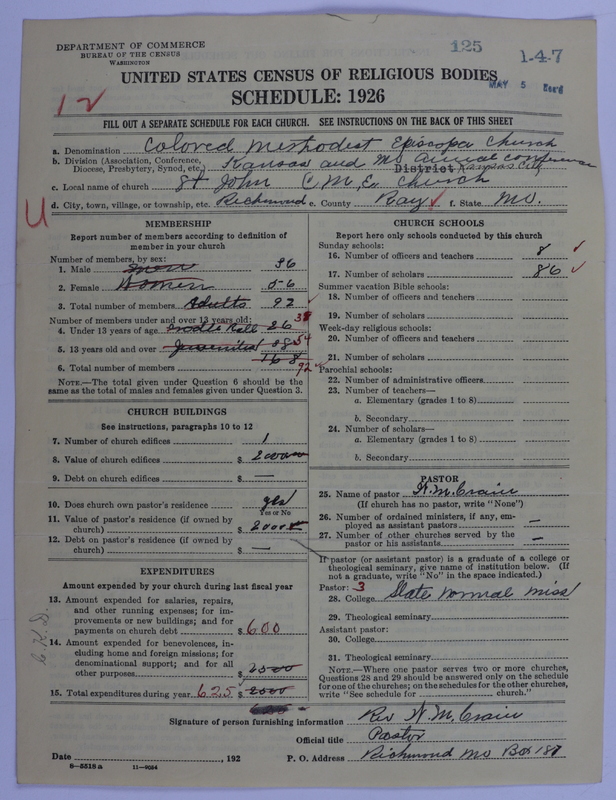 DEPARTMENT OF COMMERCE
BUREAU OF THE CENSUS
WASHINGTON
125
1-4-7
UNITED STATES CENSUS OF RELIGIOUS BODIES
MAY 5
SCHEDULE: 1926
FILL OUT A SEPARATE SCHEDULE FOR EACH CHURCH. SEE INSTRUCTIONS ON THE BACK OF THIS SHEET
a. Denomination Colored Methodist Episcopa Church
b. Division (Association, Conference, Diocese, Presbytery, Synod, etc.) Kansas and Mo Annual Conference
District Kansas City
c. Local name of church St John C.M.E. Church
d. City, town, village, or township, etc. Richmond e. County Ray f. State Mo.
U
MEMBERSHIP
Report number of members according to definition of
member in your church
Number of members, by sex:
1. Male 36
2. Female Women 56
3. Total number of members Adults 92
Number of members under and over 13 years old:
4. Under 13 years of age Cradle Roll 26 38
5. 13 years old and over 54
6. Total number of members 168 92
NOTE.—The total given under Question 6 should be the
same as the total of males and females given under Question 3.
CHURCH BUILDINGS
See instructions, paragraphs 10 to 12
7. Number of church edifices 1
8. Value of church edifices $
9. Debt on church edifices $ —
10. Does church own pastor's residence yes
Yes or No
11. Value of pastor's residence (if owned by
church) $
12. Debt on pastor's residence (if owned by
church) $ —
EXPENDITURES
Amount expended by your church during last fiscal year
13. Amount expended for salaries, repairs,
and other running expenses; for im-
provements or new buildings; and for
payments on church debt $ 600
14. Amount expended for benevolences, in-
cluding home and foreign missions; for
denominational support; and for all
other purposes $ 2500
15. Total expenditures during year 625 $ 2500
CHURCH SCHOOLS
Report here only schools conducted by this church
Sunday schools:
16. Number of officers and teachers 8
17. Number of scholars 86
Summer vacation Bible schools:
18. Number of officers and teachers
19. Number of scholars
Week-day religious schools:
20. Number of officers and teachers
21. Number of scholars
Parochial schools:
22. Number of administrative officers
23. Number of teachers—
a. Elementary (grades 1 to 8)
b. Secondary
24. Number of scholars—
a. Elementary (grades 1 to 8)
b. Secondary
PASTOR
25. Name of pastor W.M. Crain
(If church has no pastor, write "None")
26. Number of ordained ministers, if any, em-
ployed as assistant pastors —
27. Number of other churches served by the
pastor or his assistants —
If pastor (or assistant pastor) is a graduate of a college or
theological seminary, give name of institution below. (If
not a graduate, write "No" in the space indicated.)
Pastor: 3
28. College State normal miss
29. Theological seminary
Assistant pastor:
30. College
31. Theological seminary
NOTE.—Where one pastor serves two or more churches,
Questions 28 and 29 should be answered only on the schedule
for one of the churches; on the schedules for the other churches,
write "See schedule for church."
Signature of person furnishing information Rev W.M. Crain
Official title Pastor
Date , 192 P. O. Address Richmond Mo Box 187
8—5518 a 11—9024